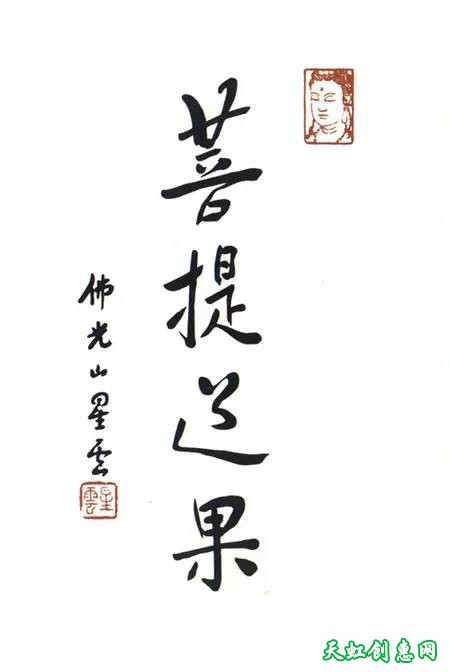 菩提道果
佛光山星雲
星雲
天虹创惠网